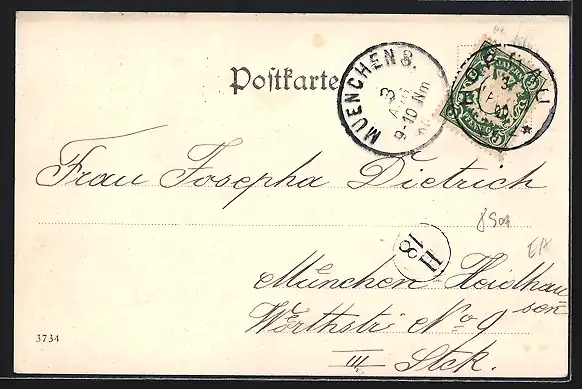 Postkarte
MUENCHEN 8.
3
9-10 Nm
Frau Josepha Dietrich
18
II
München-Heidhau=
sen
Wörthstr. No 9
III. Stck.
3734